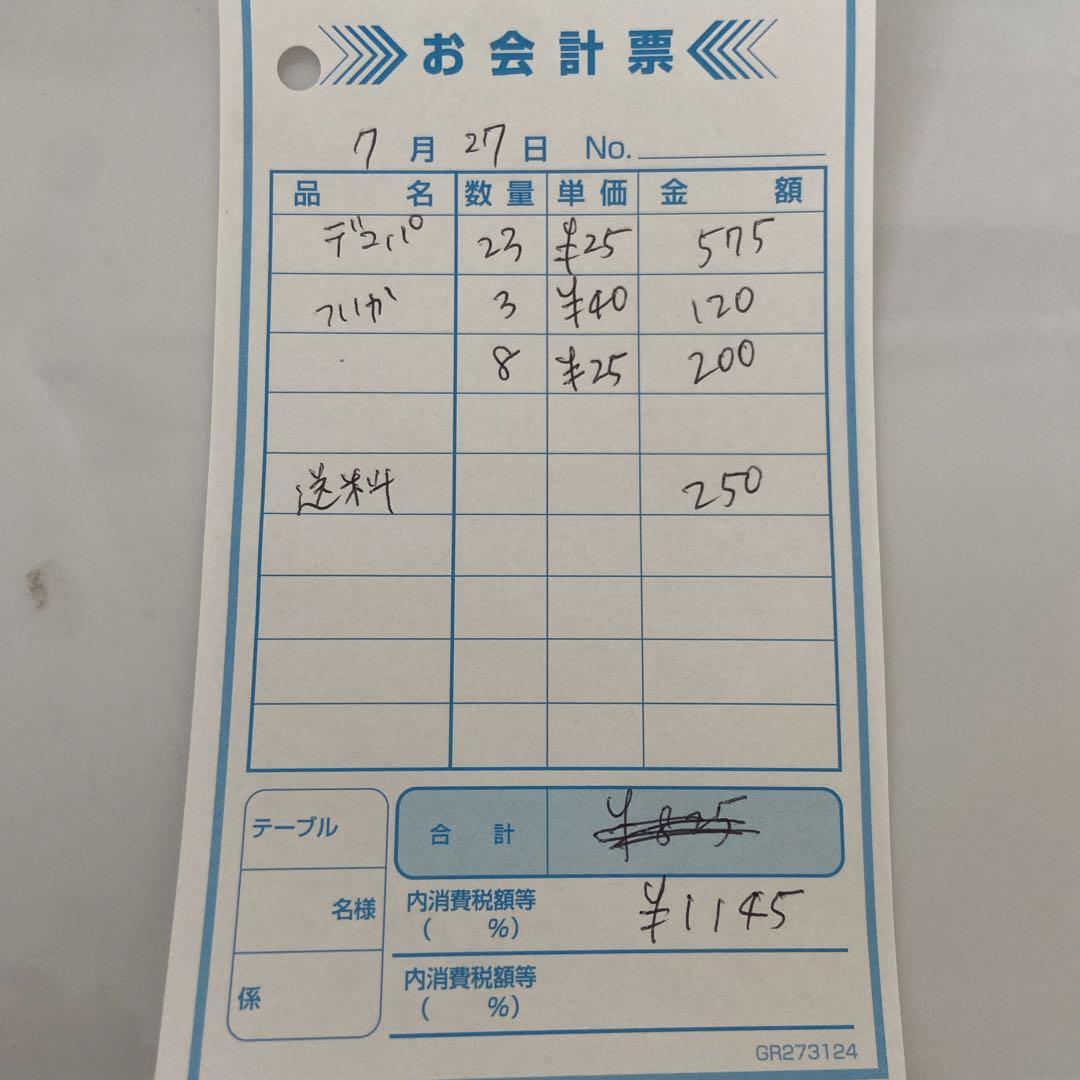 お会計票
7月27日 No.
品名 数量 単価 金額
デコパ 23 ¥25 575
3 ¥40 120
8 ¥25 200
送料 250
テーブル
名様
係
合計 ¥825
内消費税額等 ¥1145
( %)
内消費税額等
( %)
GR273124